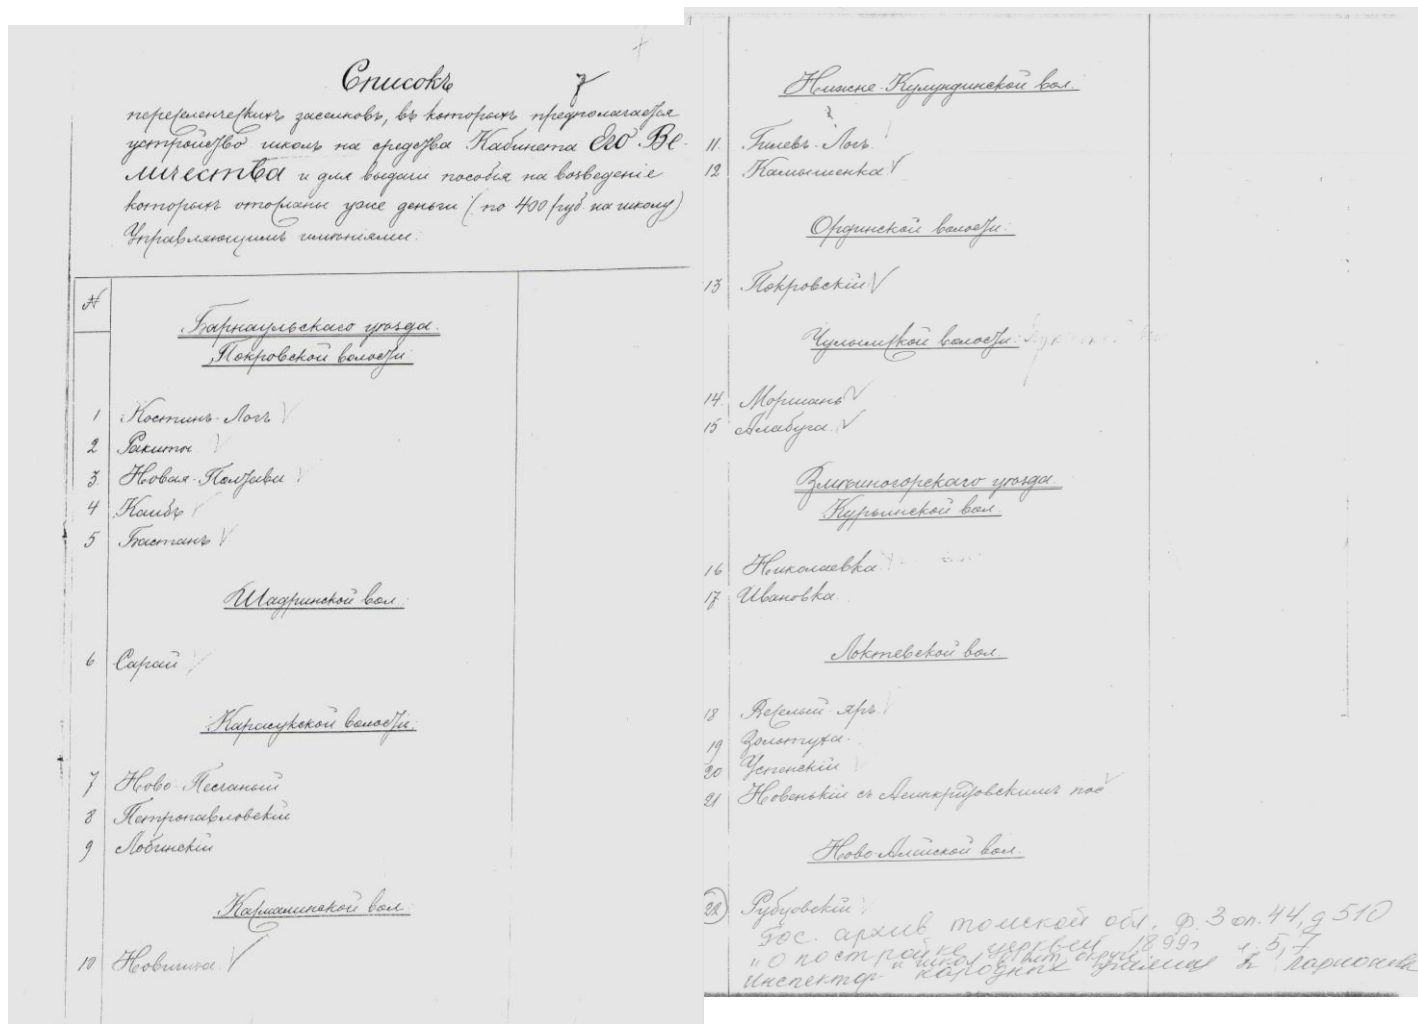 Списокъ
7
переселенческихъ заселковъ, въ которыхъ предполагается
устройство школъ на средства Кабинета Его Ве-
личества и для выдачи пособія на возведеніе
которыхъ отосланы уже деньги (по 400 руб. на школу)
Управляющимъ имѣніями:
№
Барнаульскаго уѣзда.
Покровской волости:
1 Костинъ-Логъ
2 Ракиты
3 Новая-Полтава
4 Каибъ
5 Бастанъ
Шадринской вол.:
6 Сарай
Карасукской волости:
7 Ново-Песчаный
8 Петропавловскій
9 Лобинскій
Кармалинской вол.
10 Новичиха
Нижне-Кулундинской вол.
11. Гилевъ-Логъ.
12 Камышенка
Ординской волости:
13 Покровскій
Чулымской волости:
14. Моршань
15 Алабуга.
Змѣиногорскаго уѣзда.
Курьинской вол.
16 Николаевка
17 Ивановка
Локтевской вол.
18 Веселый-яръ
19 Золотуха.
20 Успенскій
21 Новенькій съ пос
Ново-Алейской вол.
22 Рубцовскій
Гос. архив томской обл. ф. 3 оп. 44, д 510
"О постройке церквей 1899г л. 5, 7
и школ в округе"
инспектор народных училищ